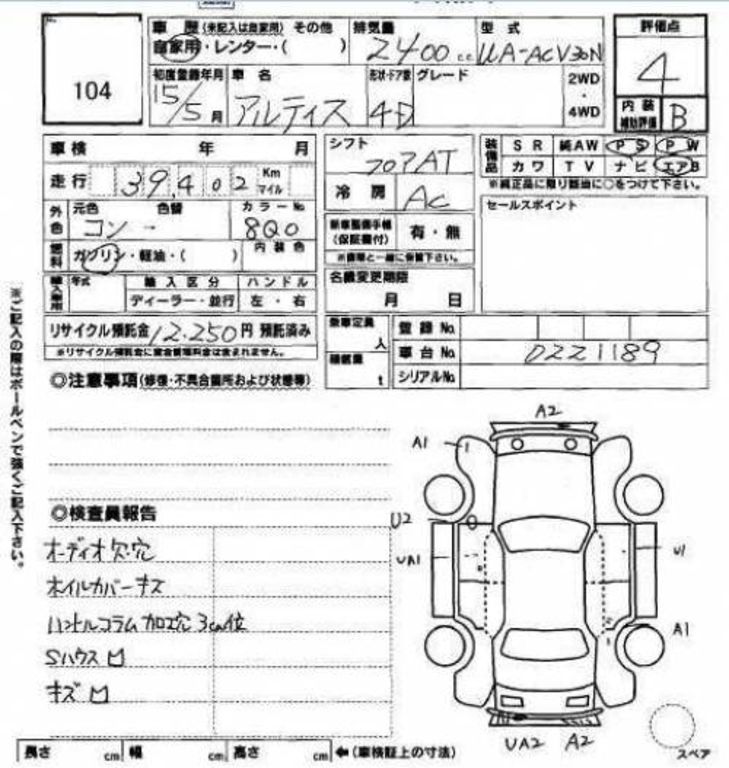 No.
104
車歴 (未記入は自家用) その他
自家用・レンター・( )
排気量
2400 cc
型式
UA-ACV30N
評価点
4
内装
補助評価
B
初度登録年月
15/5 月
車名
アルティス
形状・ドア数
4D
グレード
2WD
・
4WD
車検 年 月
走行 39,402 Km
マイル
外色
元色 色替 カラーNo.
コン - 8Q0
燃料
ガソリン・軽油・( )
内装色
輸入車用
年式
輸入区分
ディーラー・並行
ハンドル
左・右
リサイクル預託金 12,250 円 預託済み
※リサイクル預託金に資金管理料金は含まれません。
シフト
フロアAT
冷房
AC
新車整備手帳
(保証書付)
有・無
※書類と一緒に保管下さい。
名義変更期限
月 日
乗車定員
人
積載量
t
装備品
SR 純AW PS PW
カワ TV ナビ エアB
※純正品に限り該当に○をつけて下さい。
セールスポイント
登録No.
車台No. 0221189
シリアルNo.
※ご記入の際はボールペンで強くご記入下さい。
◎注意事項(修復・不具合箇所および状態等)
◎検査員報告
オーディオ欠・穴
ホイルカバーキズ
ハンドルコラム加工穴 3cm位
Sハウス凹
キズ凹
A2
A1
U2
UA1
U1
A1
UA2 A2
スペア
長さ cm 幅 cm 高さ cm ←(車検証上の寸法)